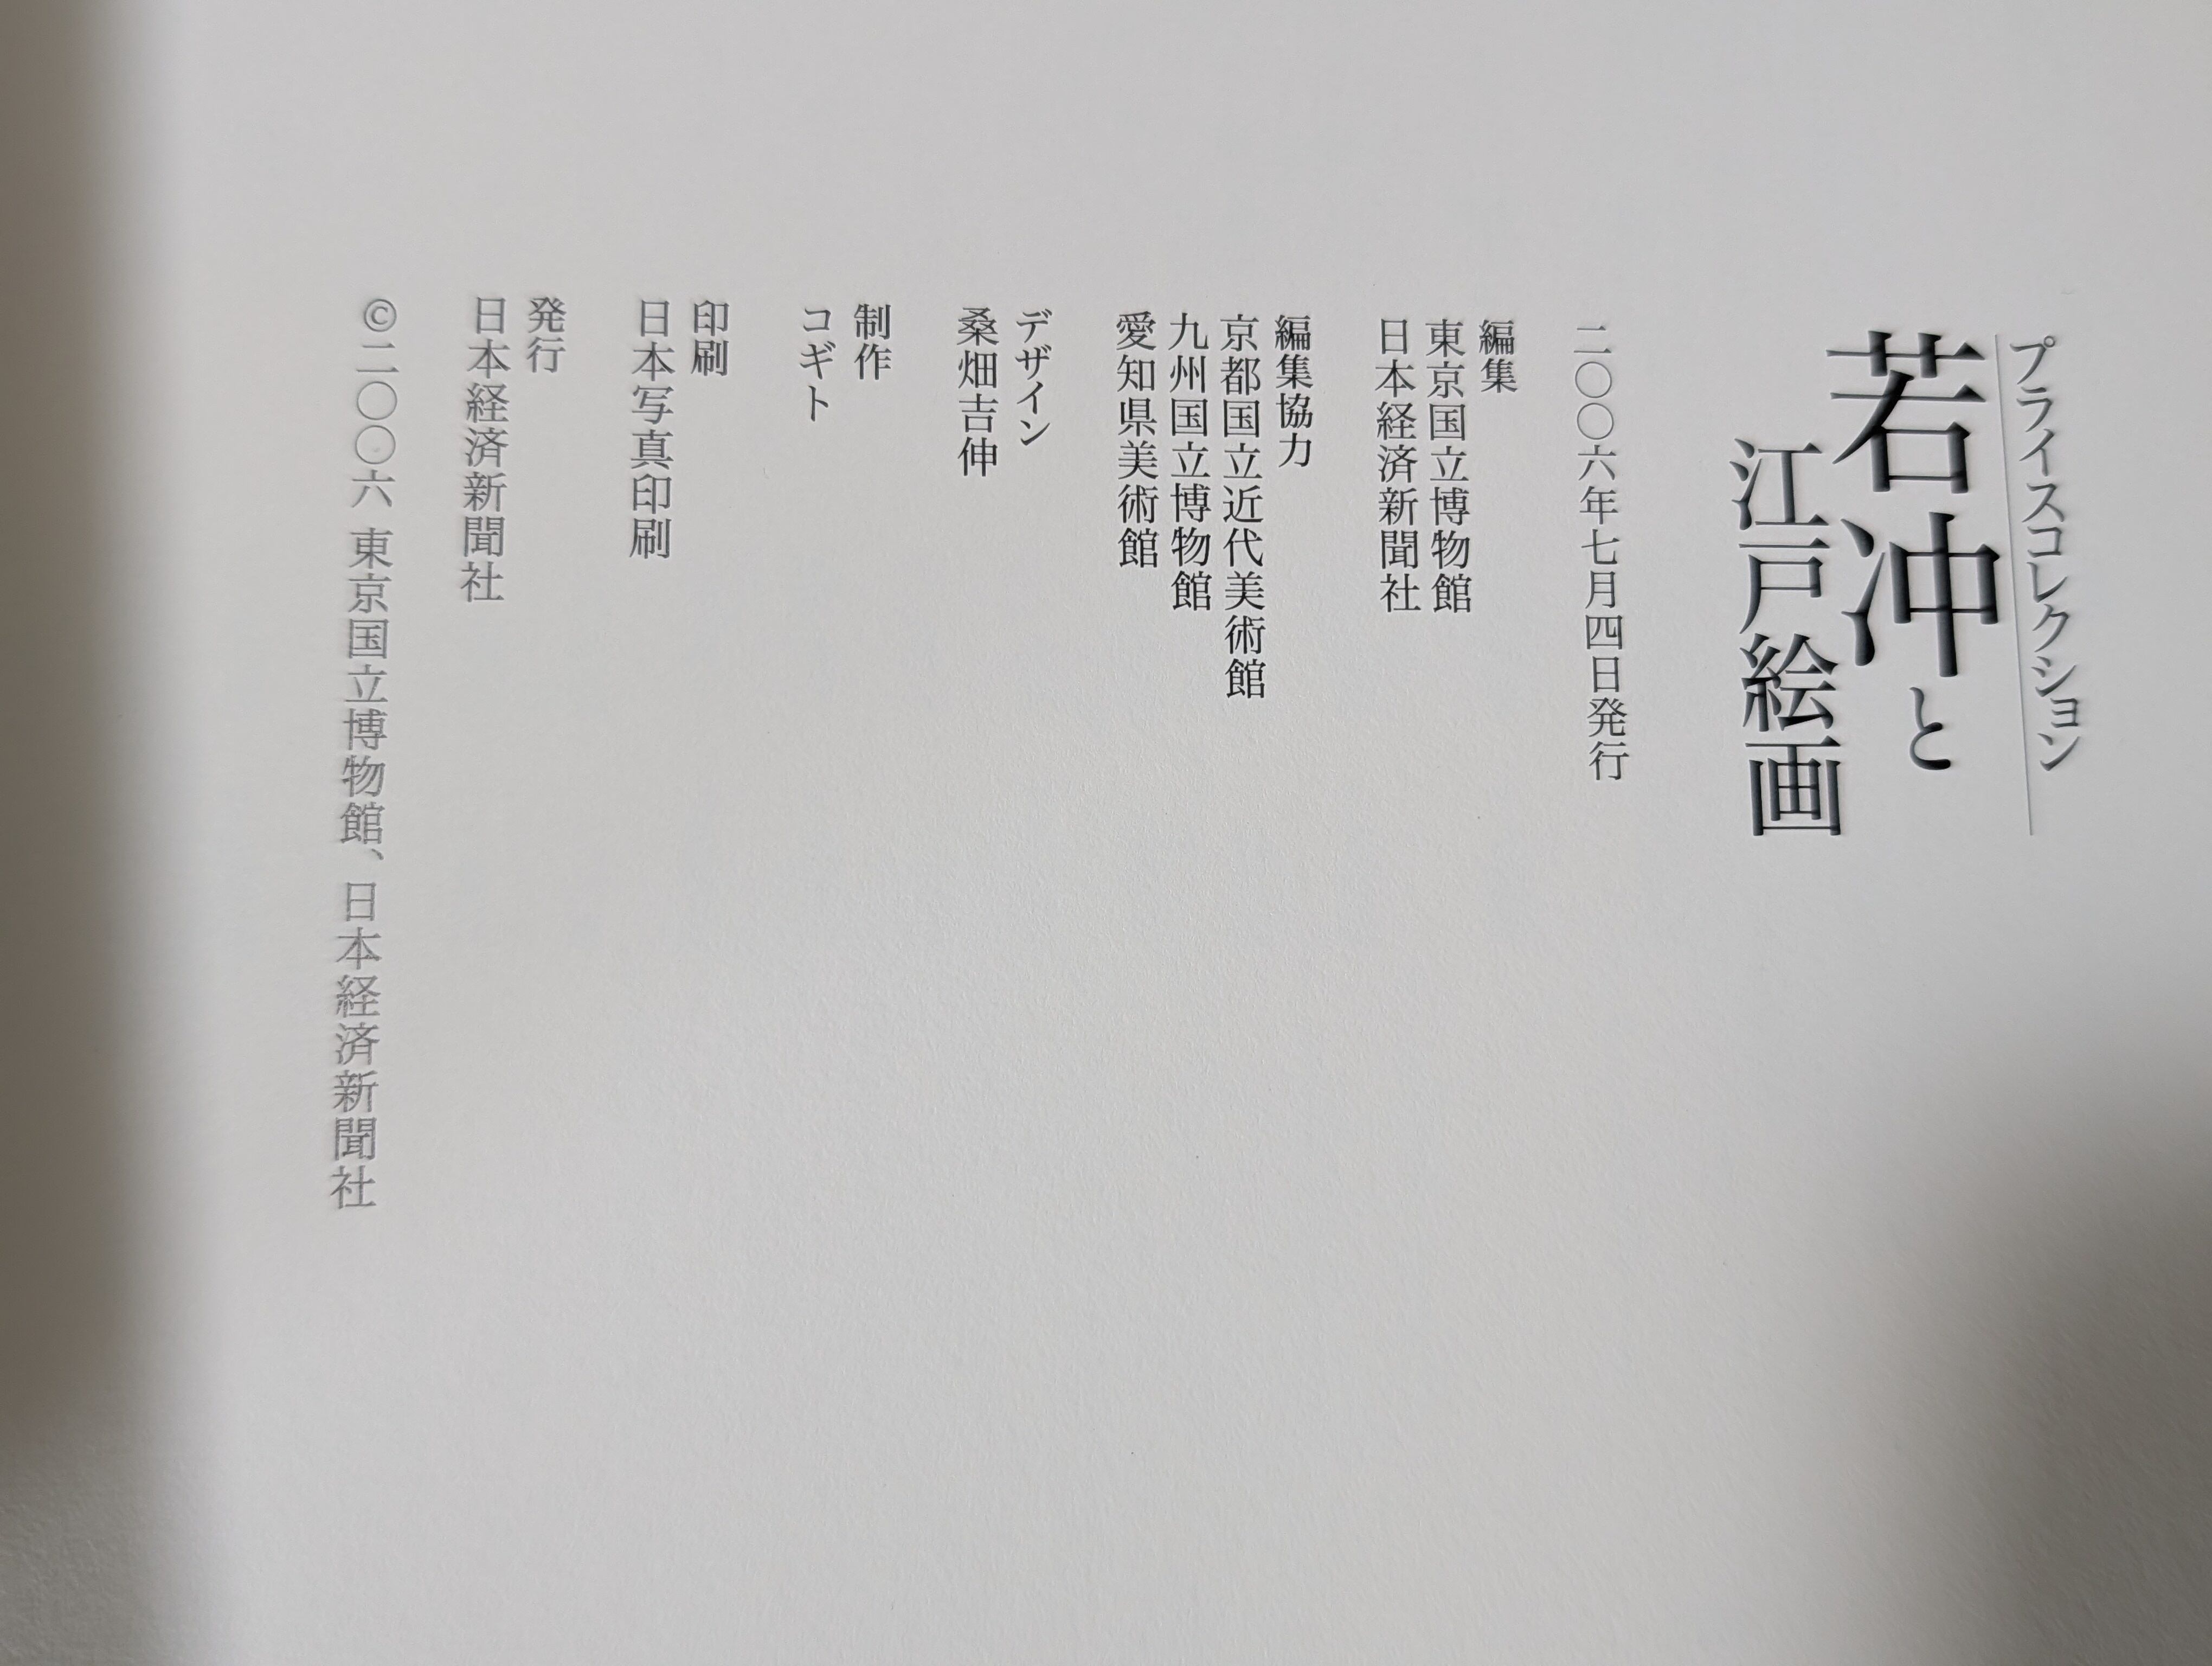 プライスコレクション
若冲と
江戸絵画
二〇〇六年七月四日発行
編集
東京国立博物館
日本経済新聞社
編集協力
京都国立近代美術館
九州国立博物館
愛知県美術館
デザイン
桑畑吉伸
制作
コギト
印刷
日本写真印刷
発行
日本経済新聞社
©二〇〇六 東京国立博物館、日本経済新聞社